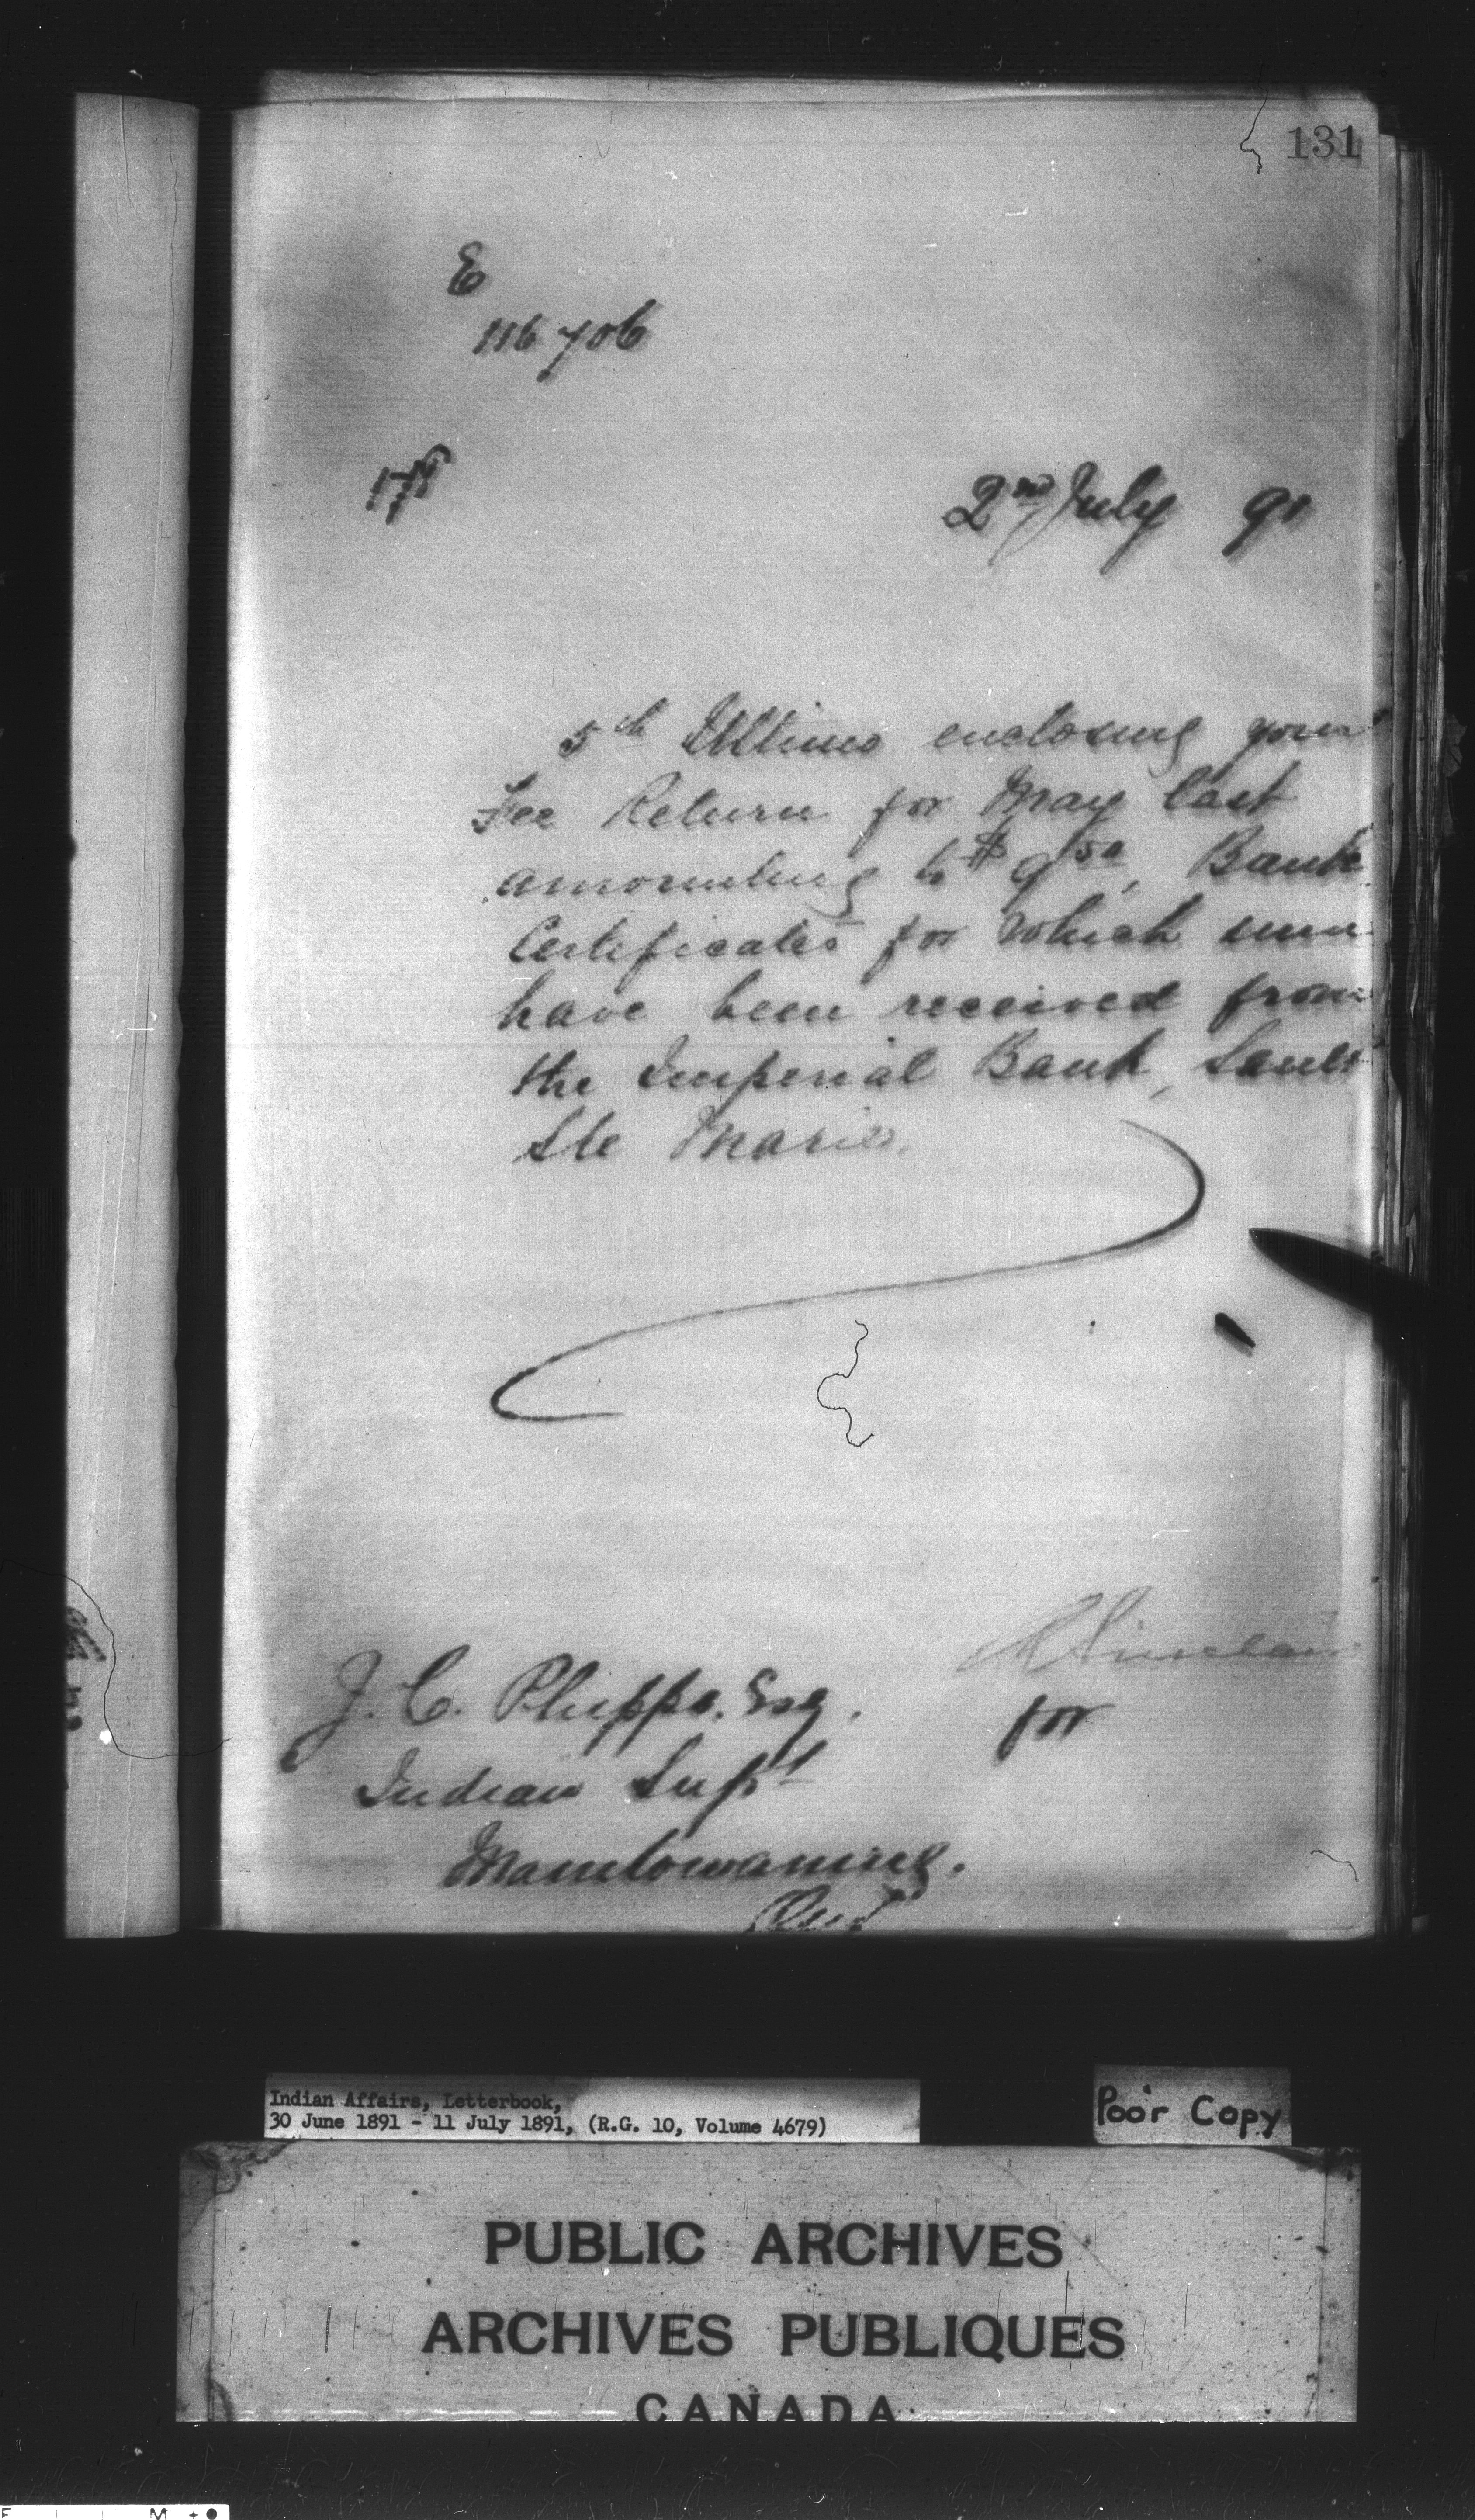 131
E
116706
178
2nd July 91
5th Ultimo enclosing your
Fee Return for May last
amounting to $9 50, Bank
Certificates for which sum
have been received from
the Imperial Bank, Sault
Ste Marie.
R Sinclair
for
J. C. Phipps. Esq.
Indian Supt
Manitowaning.
Ont
Indian Affairs, Letterbook,
30 June 1891 - 11 July 1891, (R.G. 10, Volume 4679)
Poor Copy
PUBLIC ARCHIVES
ARCHIVES PUBLIQUES
CANADA